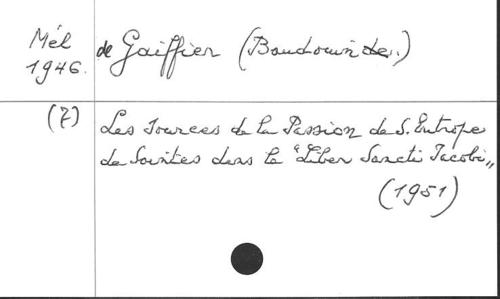 Mél de Gaiffier (Baudouin de..)
1946.
(7) Les sources de la Passion de S. Eutrope
de Saintes dans le "Liber Sancti Jacobi„
(1951)